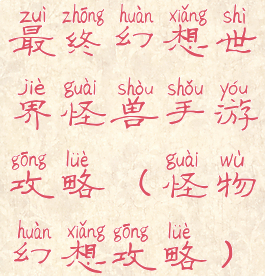 zuì zhōng huàn xiǎng shì
最终幻想世
jiè guài shòu shǒu yóu
界怪兽手游
gōng lüè guài wù
攻略（怪物
huàn xiǎng gōng lüè
幻想攻略）